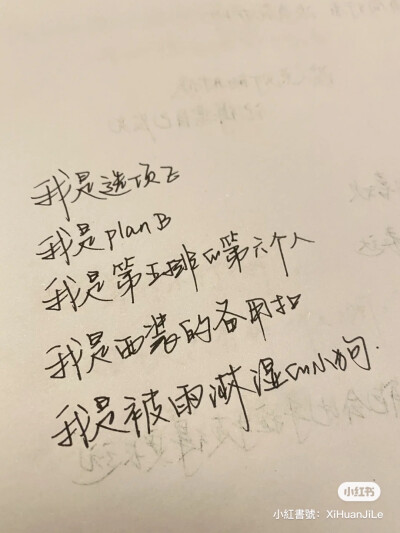 我是选项E
我是planB
我是第五排的第六个人
我是西装的备用扣
我是被雨淋湿的小狗.
小红书
小紅書號：XiHuanJiLe